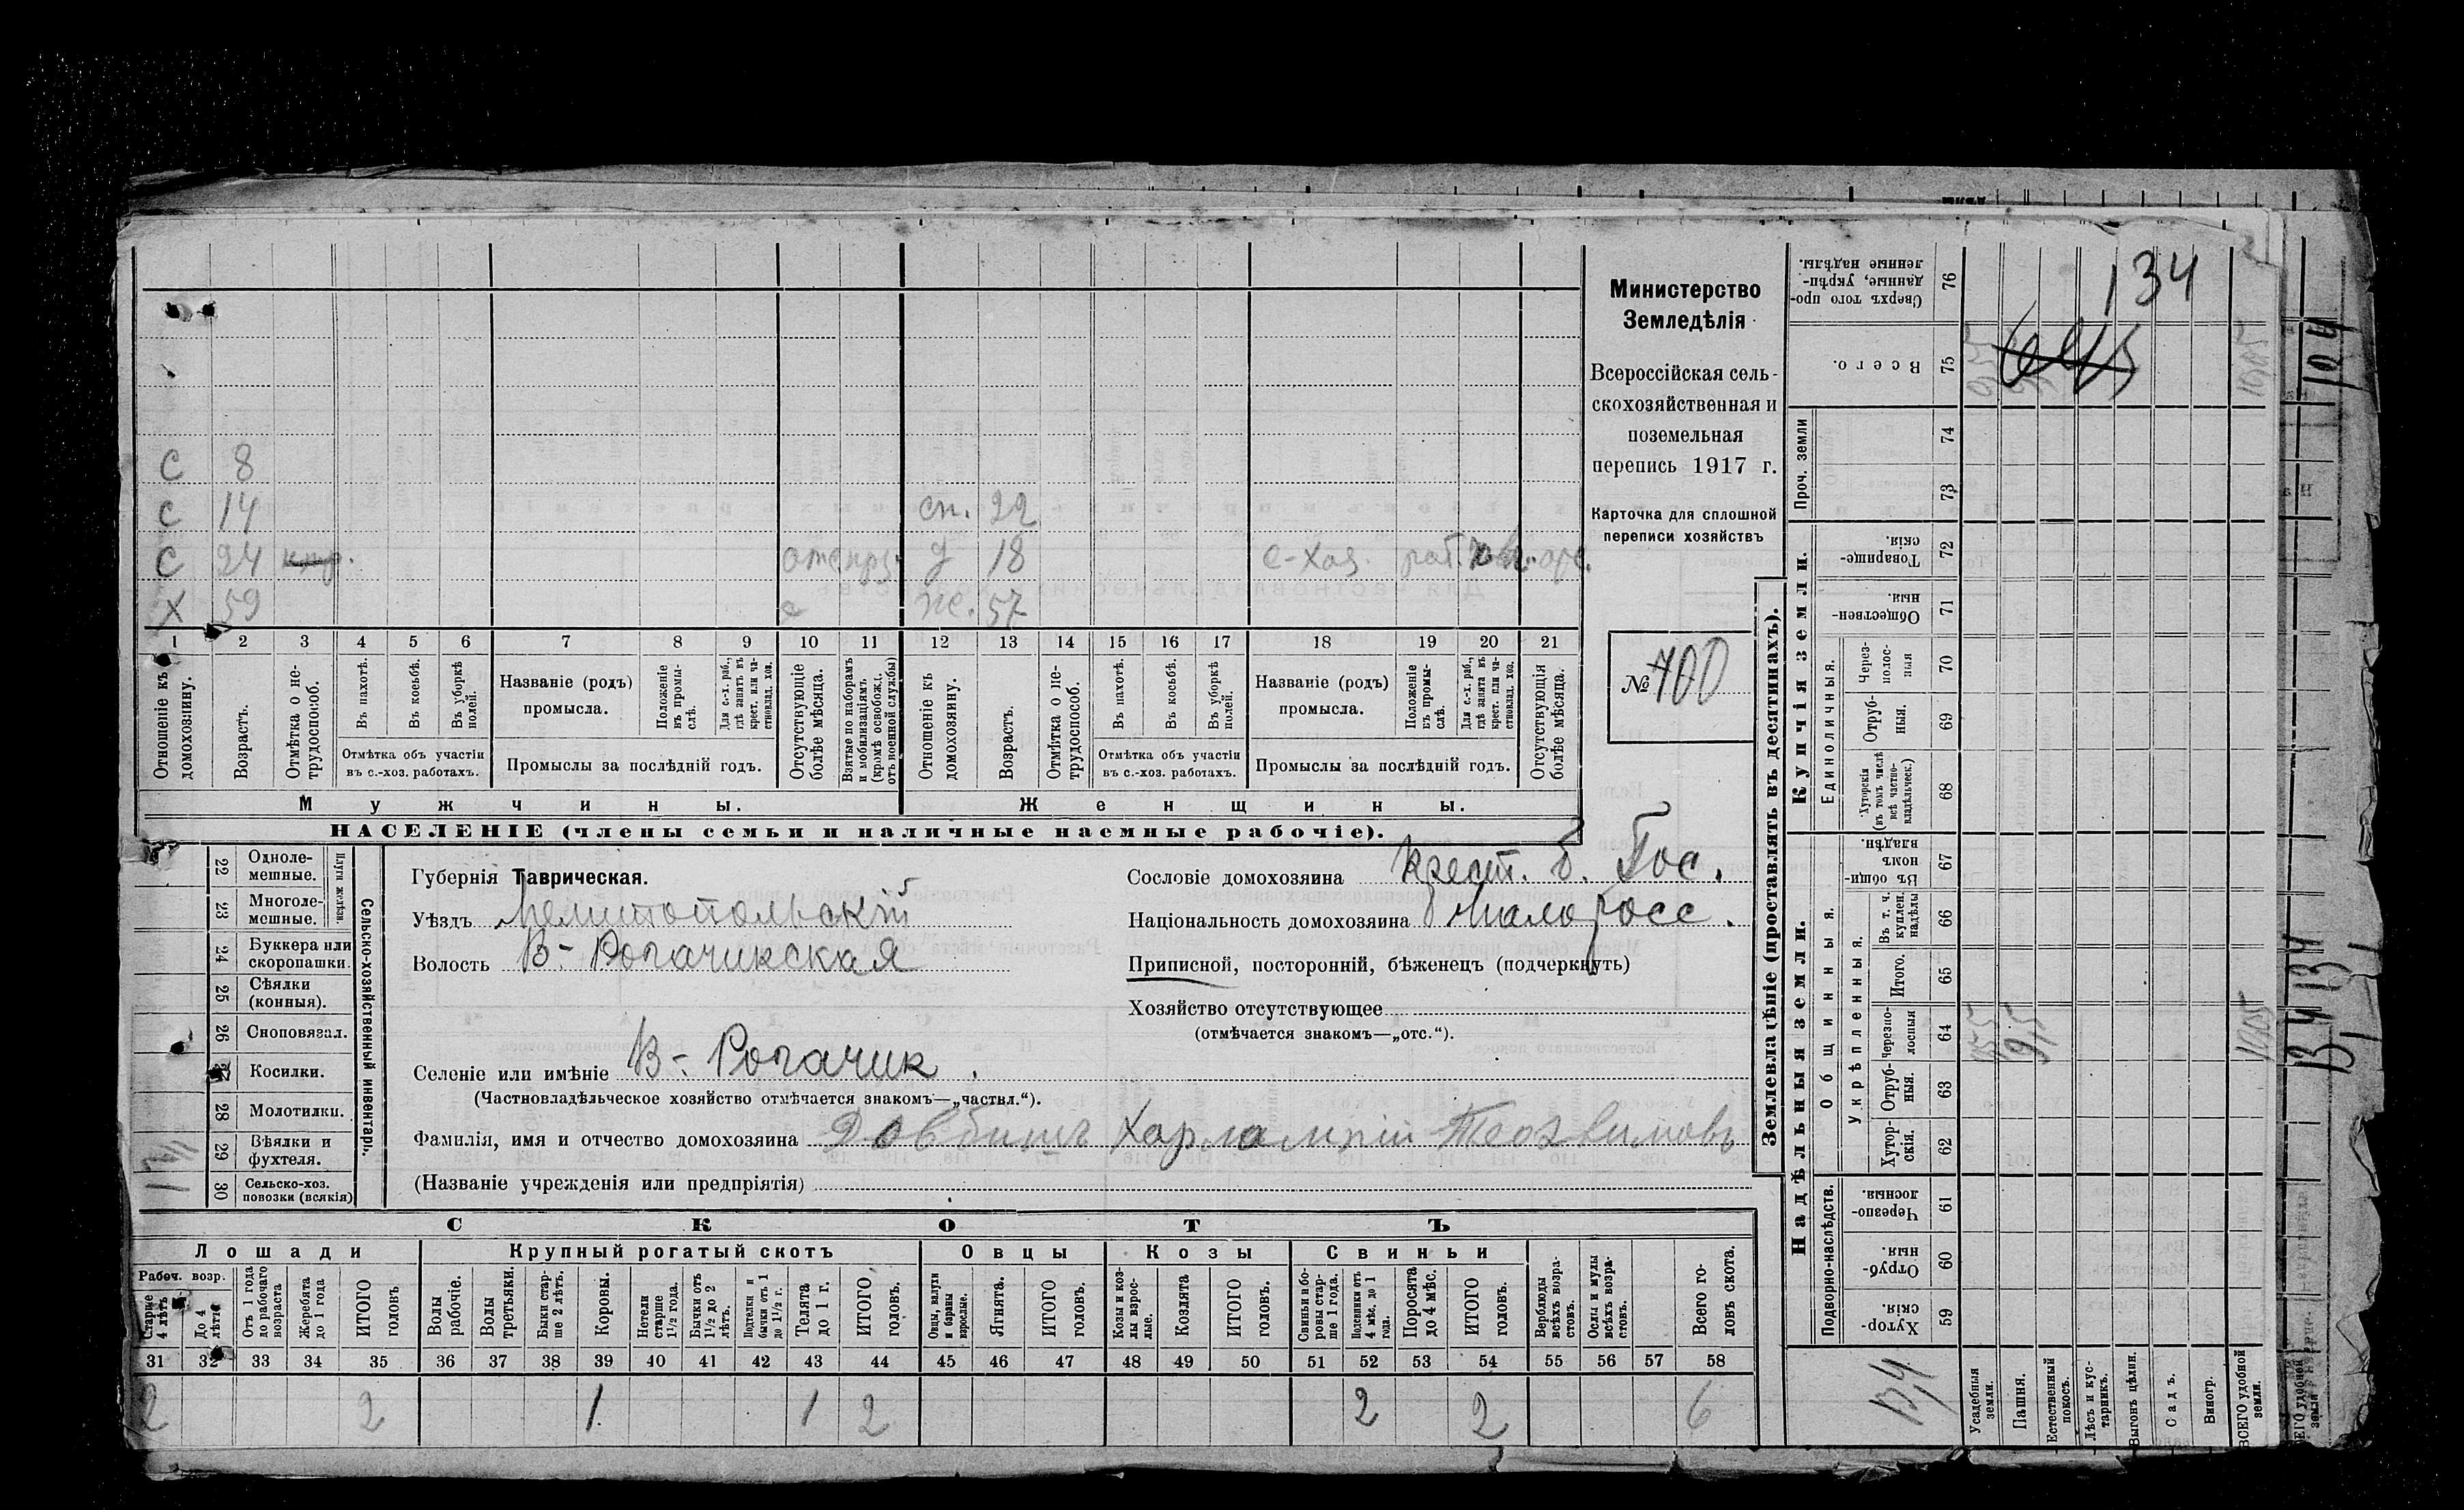 134
С 8
С 14 сп. 22
С 24 д 18 с-хоз. раб.
Х 59 ж. 57
1 2 3 4 5 6 7 8 9 10 11 12 13 14 15 16 17 18 19 20 21
Отношеніе къ домохозяину.
Возрастъ.
Отмѣтка о нетрудоспособ.
Въ пахотѣ.
Въ косьбѣ.
Въ уборкѣ полей.
Отмѣтка объ участіи въ с.-хоз. работахъ.
Названіе (родъ) промысла.
Положеніе въ промыслѣ.
Для с.-х. раб., гдѣ занятъ въ крест. или частновлад. хоз.
Промыслы за послѣдній годъ.
Отсутствующіе болѣе мѣсяца.
Взятые по наборамъ и мобилизаціямъ (кромѣ освобожд. отъ военной службы)
Отношеніе къ домохозяину.
Возрастъ.
Отмѣтка о нетрудоспособ.
Въ пахотѣ.
Въ косьбѣ.
Въ уборкѣ полей.
Отмѣтка объ участіи въ с.-хоз. работахъ.
Названіе (родъ) промысла.
Положеніе въ промыслѣ.
Для с.-х. раб., гдѣ занята въ крест. или частновлад. хоз.
Промыслы за послѣдній годъ.
Отсутствующія болѣе мѣсяца.
Мужчины.
Женщины.
НАСЕЛЕНІЕ (члены семьи и наличные наемные рабочіе).
Министерство
Земледѣлія
Всероссійская сель-
скохозяйственная и
поземельная
перепись 1917 г.
Карточка для сплошной
переписи хозяйствъ
№ 700
22 Однолемешные.
23 Многолемешные.
Плуги желѣзн.
24 Буккера или скоропашки.
25 Сѣялки (конныя).
26 Сноповязал.
27 Косилки.
28 Молотилки.
29 Вѣялки и фухтеля.
30 Сельско-хоз. повозки (всякія)
Сельско-хозяйственный инвентарь.
Губернія Таврическая.
Уѣздъ Мелитопольскій
Волость В-Рогачикская
Селеніе или имѣніе В-Рогачик.
(Частновладѣльческое хозяйство отмѣчается знакомъ—„частвл.“).
Фамилія, имя и отчество домохозяина Довбишъ Харлампій
(Названіе учрежденія или предпріятія)
Сословіе домохозяина Крест. б. Гос.
Національность домохозяина Малоросс.
Приписной, посторонній, бѣженецъ (подчеркнуть)
Хозяйство отсутствующее
(отмѣчается знакомъ—„отс.“).
СКОТЪ
Лошади
Крупный рогатый скотъ
Овцы
Козы
Свиньи
Рабоч. возр.
Старше 4 лѣтъ
До 4 лѣтъ
Отъ 1 года до рабочаго возраста
Жеребята до 1 года
ИТОГО головъ
Волы рабочіе.
Волы третьяки.
Быки старше 2 лѣтъ.
Коровы.
Нетели старше 1½ года.
Бычки отъ 1½ до 2 лѣтъ.
Подтелки и бычки отъ 1 до 1½ г.
Телята до 1 г.
ИТОГО головъ.
Овцы, валухи и бараны взрослые.
Ягнята.
ИТОГО головъ.
Козы и козлы взрослые.
Козлята
ИТОГО головъ.
Свиньи и боровы старше 1 года.
Подсвинки отъ 4 мѣс. до 1 года.
Поросята до 4 мѣс.
ИТОГО головъ.
Верблюды всѣхъ возрастовъ.
Ослы и мулы всѣхъ возрастовъ.
Всего головъ скота.
31 32 33 34 35 36 37 38 39 40 41 42 43 44 45 46 47 48 49 50 51 52 53 54 55 56 57 58
2 2 1 1 2 2 2 6
Землевладѣніе (проставлять въ десятинахъ).
Купчія земли.
Надѣльныя земли.
Единоличныя.
Общинныя.
Укрѣпленныя.
Подворно-наслѣдств.
Проч. земли
Сверхъ того проданные, укрѣпленные надѣлы. 76
Всего. 75
74
73
Товарищескія. 72
Общественныя. 71
Черезполосныя 70
Отрубныя. 69
Хуторскія (въ томъ числѣ всѣ частновладѣльческ.) 68
Въ общиномъ владѣн. 67
Въ т. ч. куплен. надѣлы 66
Итого. 65
Черезполосныя 64
Отрубныя. 63
Хуторскія. 62
Черезполосныя. 61
Отрубныя. 60
Хуторскія. 59
Усадебныя земли.
Пашня.
Естественный покосъ.
Лѣсъ и кустарникъ.
Выгонъ цѣлин.
Садъ.
Виногр.
ВСЕГО удобной земли.
9,5
134